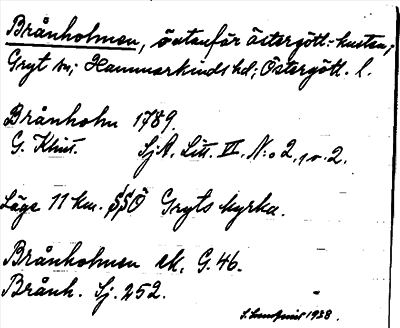 Brånholmen, östanför östergötl.-kusten;
Gryt sn; Hammarkinds hd; Östergötl. l.
Brånholm 1789
G. Klint. Sj.A. Litt. VI. N:o 2, s. 2.
Läge 11 km. SSÖ Gryts kyrka.
Brånholmen ek. G. 46.
Brånh. Sj. 252.
1928.